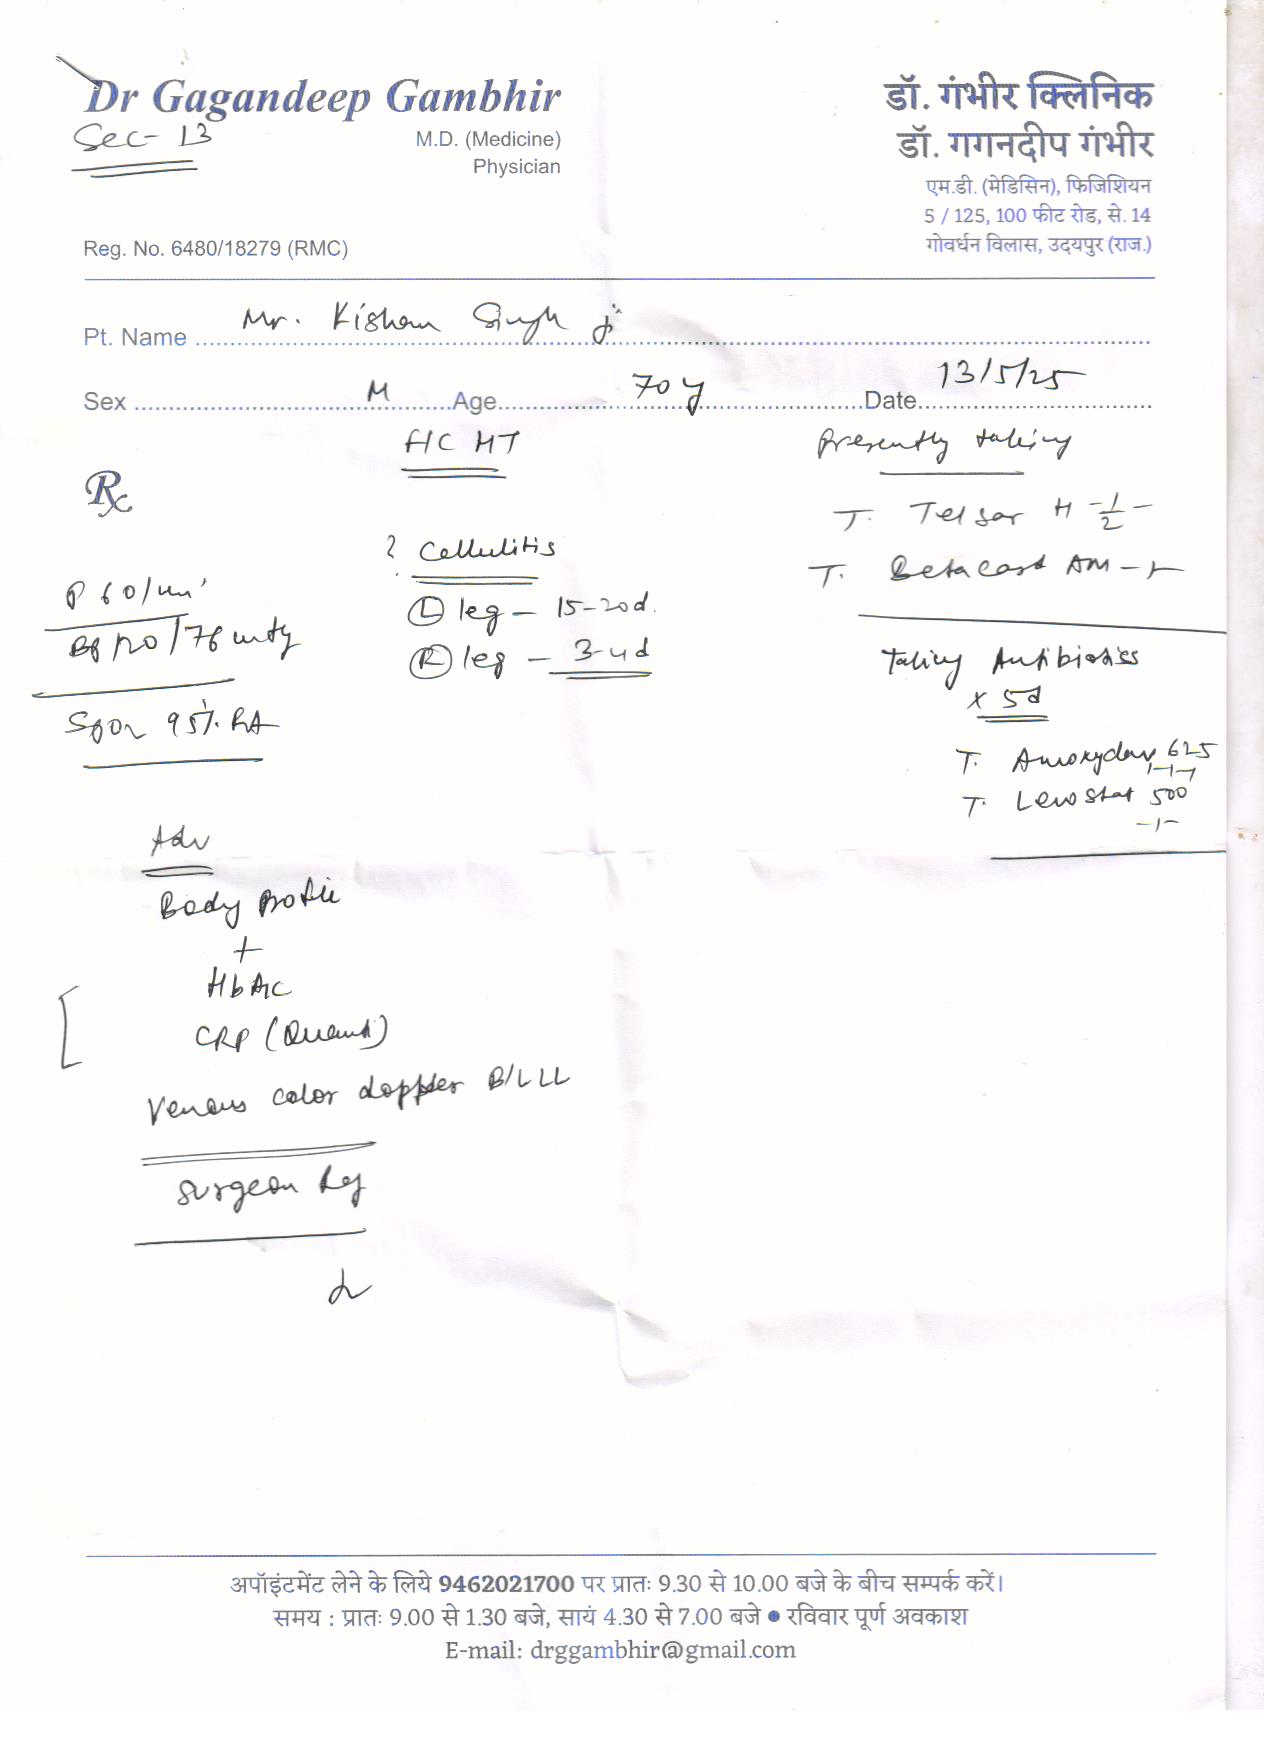 Dr Gagandeep Gambhir
Sec- 13
M.D. (Medicine)
Physician
Reg. No. 6480/18279 (RMC)
डॉ. गंभीर क्लिनिक
डॉ. गगनदीप गंभीर
एम.डी. (मेडिसिन), फिजिशियन
5 / 125, 100 फीट रोड, से. 14
गोवर्धन विलास, उदयपुर (राज.)
Pt. Name Mr. Kishan Singh ji
Sex M Age 70 y Date 13/5/25
HT
Rx
? Cellulitis
(L) leg - 15-20d.
(R) leg - 3-4d
P 60/min
BP 120/76 mmHg
SpO2 95% RA
Presently taking
T. Telsar H -1/2-
T. Betacard AM -1-
Taking Antibiotics
x 5d
T. Amoxyclav 625
1-1-1
T. 500
-1-
Adv
Body Profile
+
HbA1c
CRP (Quant)
Venous color doppler B/L LL
Surgeon Ref
अपॉइंटमेंट लेने के लिये 9462021700 पर प्रातः 9.30 से 10.00 बजे के बीच सम्पर्क करें।
समय : प्रातः 9.00 से 1.30 बजे, सायं 4.30 से 7.00 बजे ● रविवार पूर्ण अवकाश
E-mail: drggambhir@gmail.com